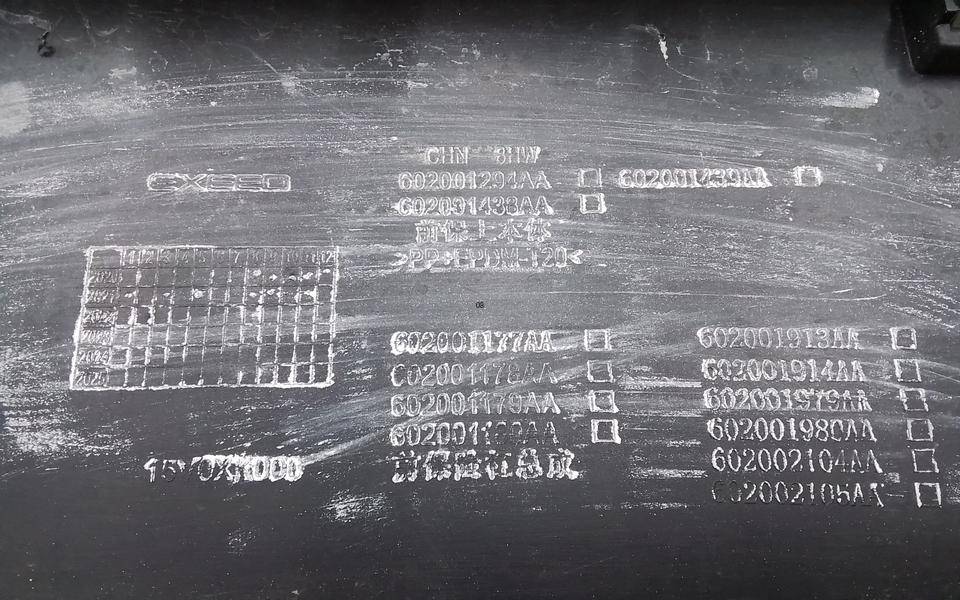 CHN 8HW
EXEED
602001294AA 602001439AA
602001438AA
前保上本体
>PP+EPDM-T20<
1 2 3 4 5 6 7 8 9 10 11 12
2020
2021
2022
2023
2024
2025
08
602001177AA 602001913AA
602001178AA 602001914AA
602001179AA 602001979AA
602001180AA 602001980AA
前保险杠总成 602002104AA
602002105AA